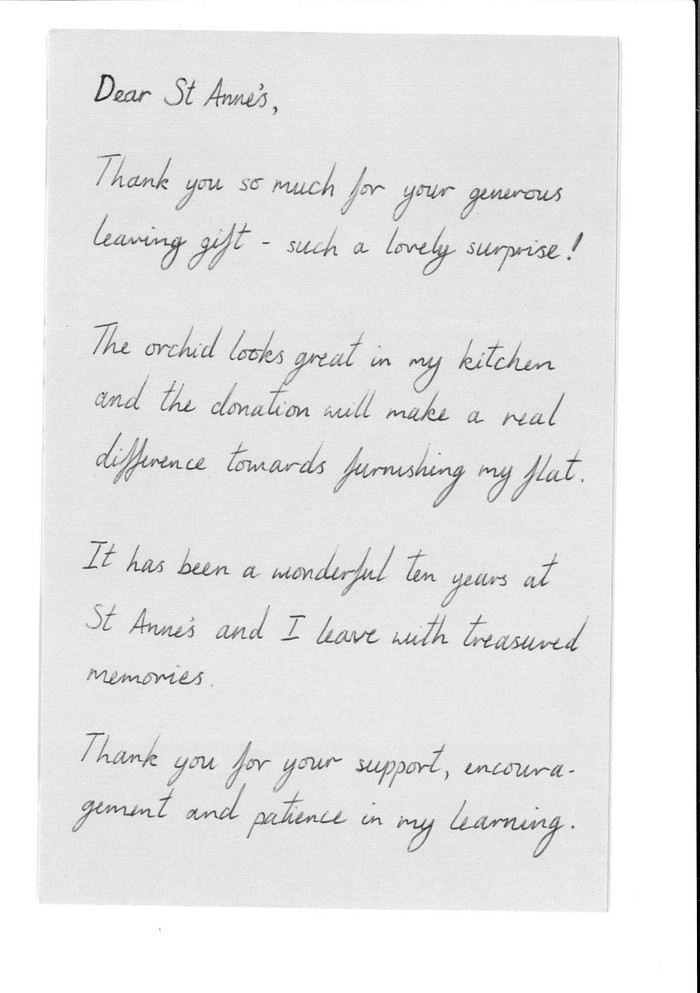 Dear St Anne's,
Thank you so much for your generous
leaving gift - such a lovely surprise!
The orchid looks great in my kitchen
and the donation will make a real
difference towards furnishing my flat.
It has been a wonderful ten years at
St Anne's and I leave with treasured
memories.
Thank you for your support, encoura-
gement and patience in my learning.